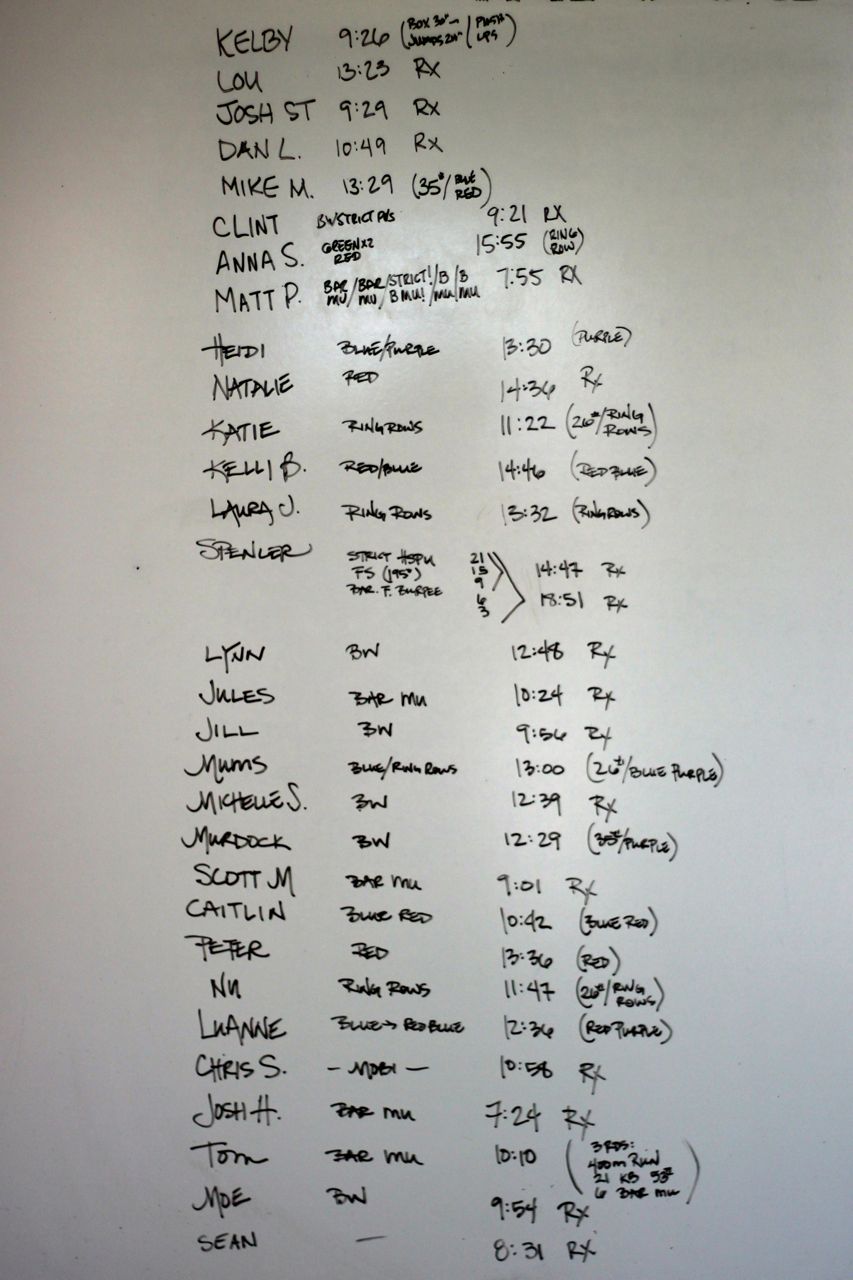 KELBY 9:26 (BOX 30"- JUMPS 24" / PUSH UPS)
LOU 13:23 RX
JOSH ST 9:29 RX
DAN L. 10:49 RX
MIKE M. 13:29 (35#/BLUE RED)
CLINT BW STRICT PUS 9:21 RX
ANNA S. GREEN X2 RED 15:55 (RING ROW)
MATT P. BAR MU/BAR MU/STRICT! B MU!/B MU/B MU 7:55 RX
HEIDI BLUE/PURPLE 13:30 (PURPLE)
NATALIE RED 14:36 RX
KATIE RING ROWS 11:22 (26#/RING ROWS)
KELLI B. RED/BLUE 14:46 (RED BLUE)
LAURA J. RING ROWS 13:32 (RING ROWS)
SPENCER STRICT HSPU 21
FS (195#) 15 14:47 RX
BAR. F. BURPEE 9
6 18:51 RX
3
LYNN BW 12:48 RX
JULES BAR MU 10:24 RX
JILL BW 9:56 RX
MUMS BLUE/RING ROWS 13:00 (26#/BLUE PURPLE)
MICHELLE S. BW 12:39 RX
MURDOCK BW 12:29 (35#/PURPLE)
SCOTT M BAR MU 9:01 RX
CAITLIN BLUE RED 10:42 (BLUE RED)
PETER RED 13:36 (RED)
NU RING ROWS 11:47 (26#/RING ROWS)
LUANNE BLUE→REDBLUE 12:36 (RED PURPLE)
CHRIS S. - MOBI - 10:58 RX
JOSH H. BAR MU 7:24 RX
TOM BAR MU 10:10 (3 RDS:
400m RUN
21 KB 53#
6 BAR MU)
MOE BW 9:54 RX
SEAN — 8:31 RX